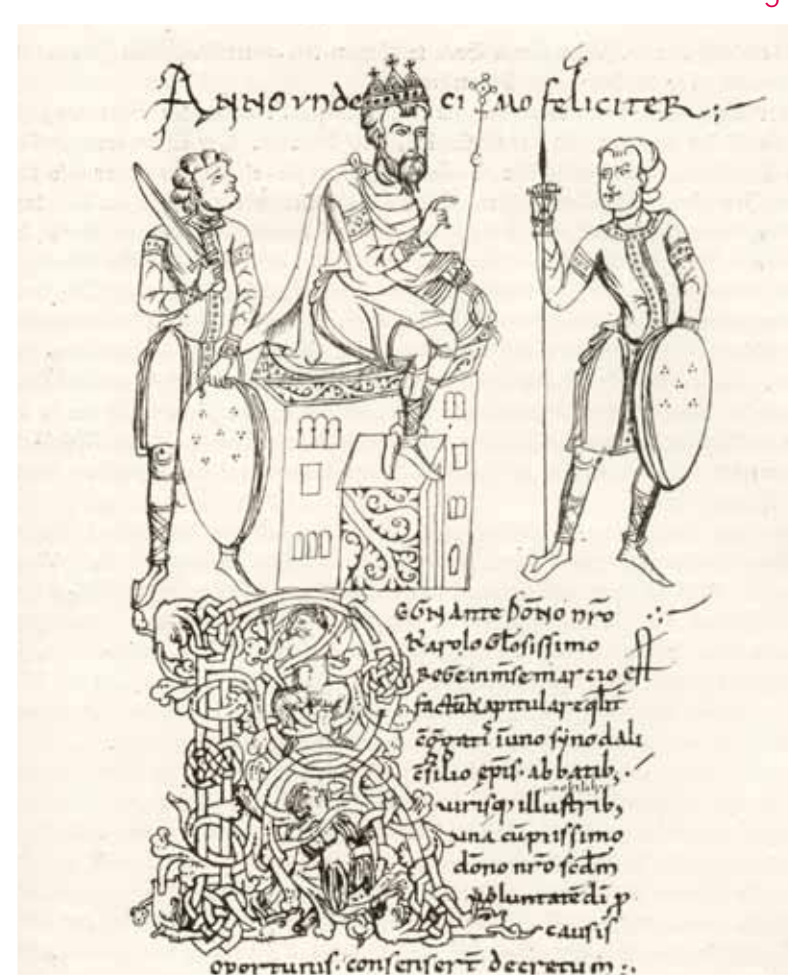 ANNO VNDECIMO feLICITER
REGNANTE DOÑO NR̄O
KAROLO GLOSISSIMO
REGE IN m̄se marcio
factū kapitulare qlit̄
ꝯgati ī uno synodali
ꝯsilio ep̄is. abbatib;
uirisq; illustrib;
una cū piissimo
dōno nr̄o scdm̄
uoluntatē dī p
causis
oportunis. consensert̄ decretum